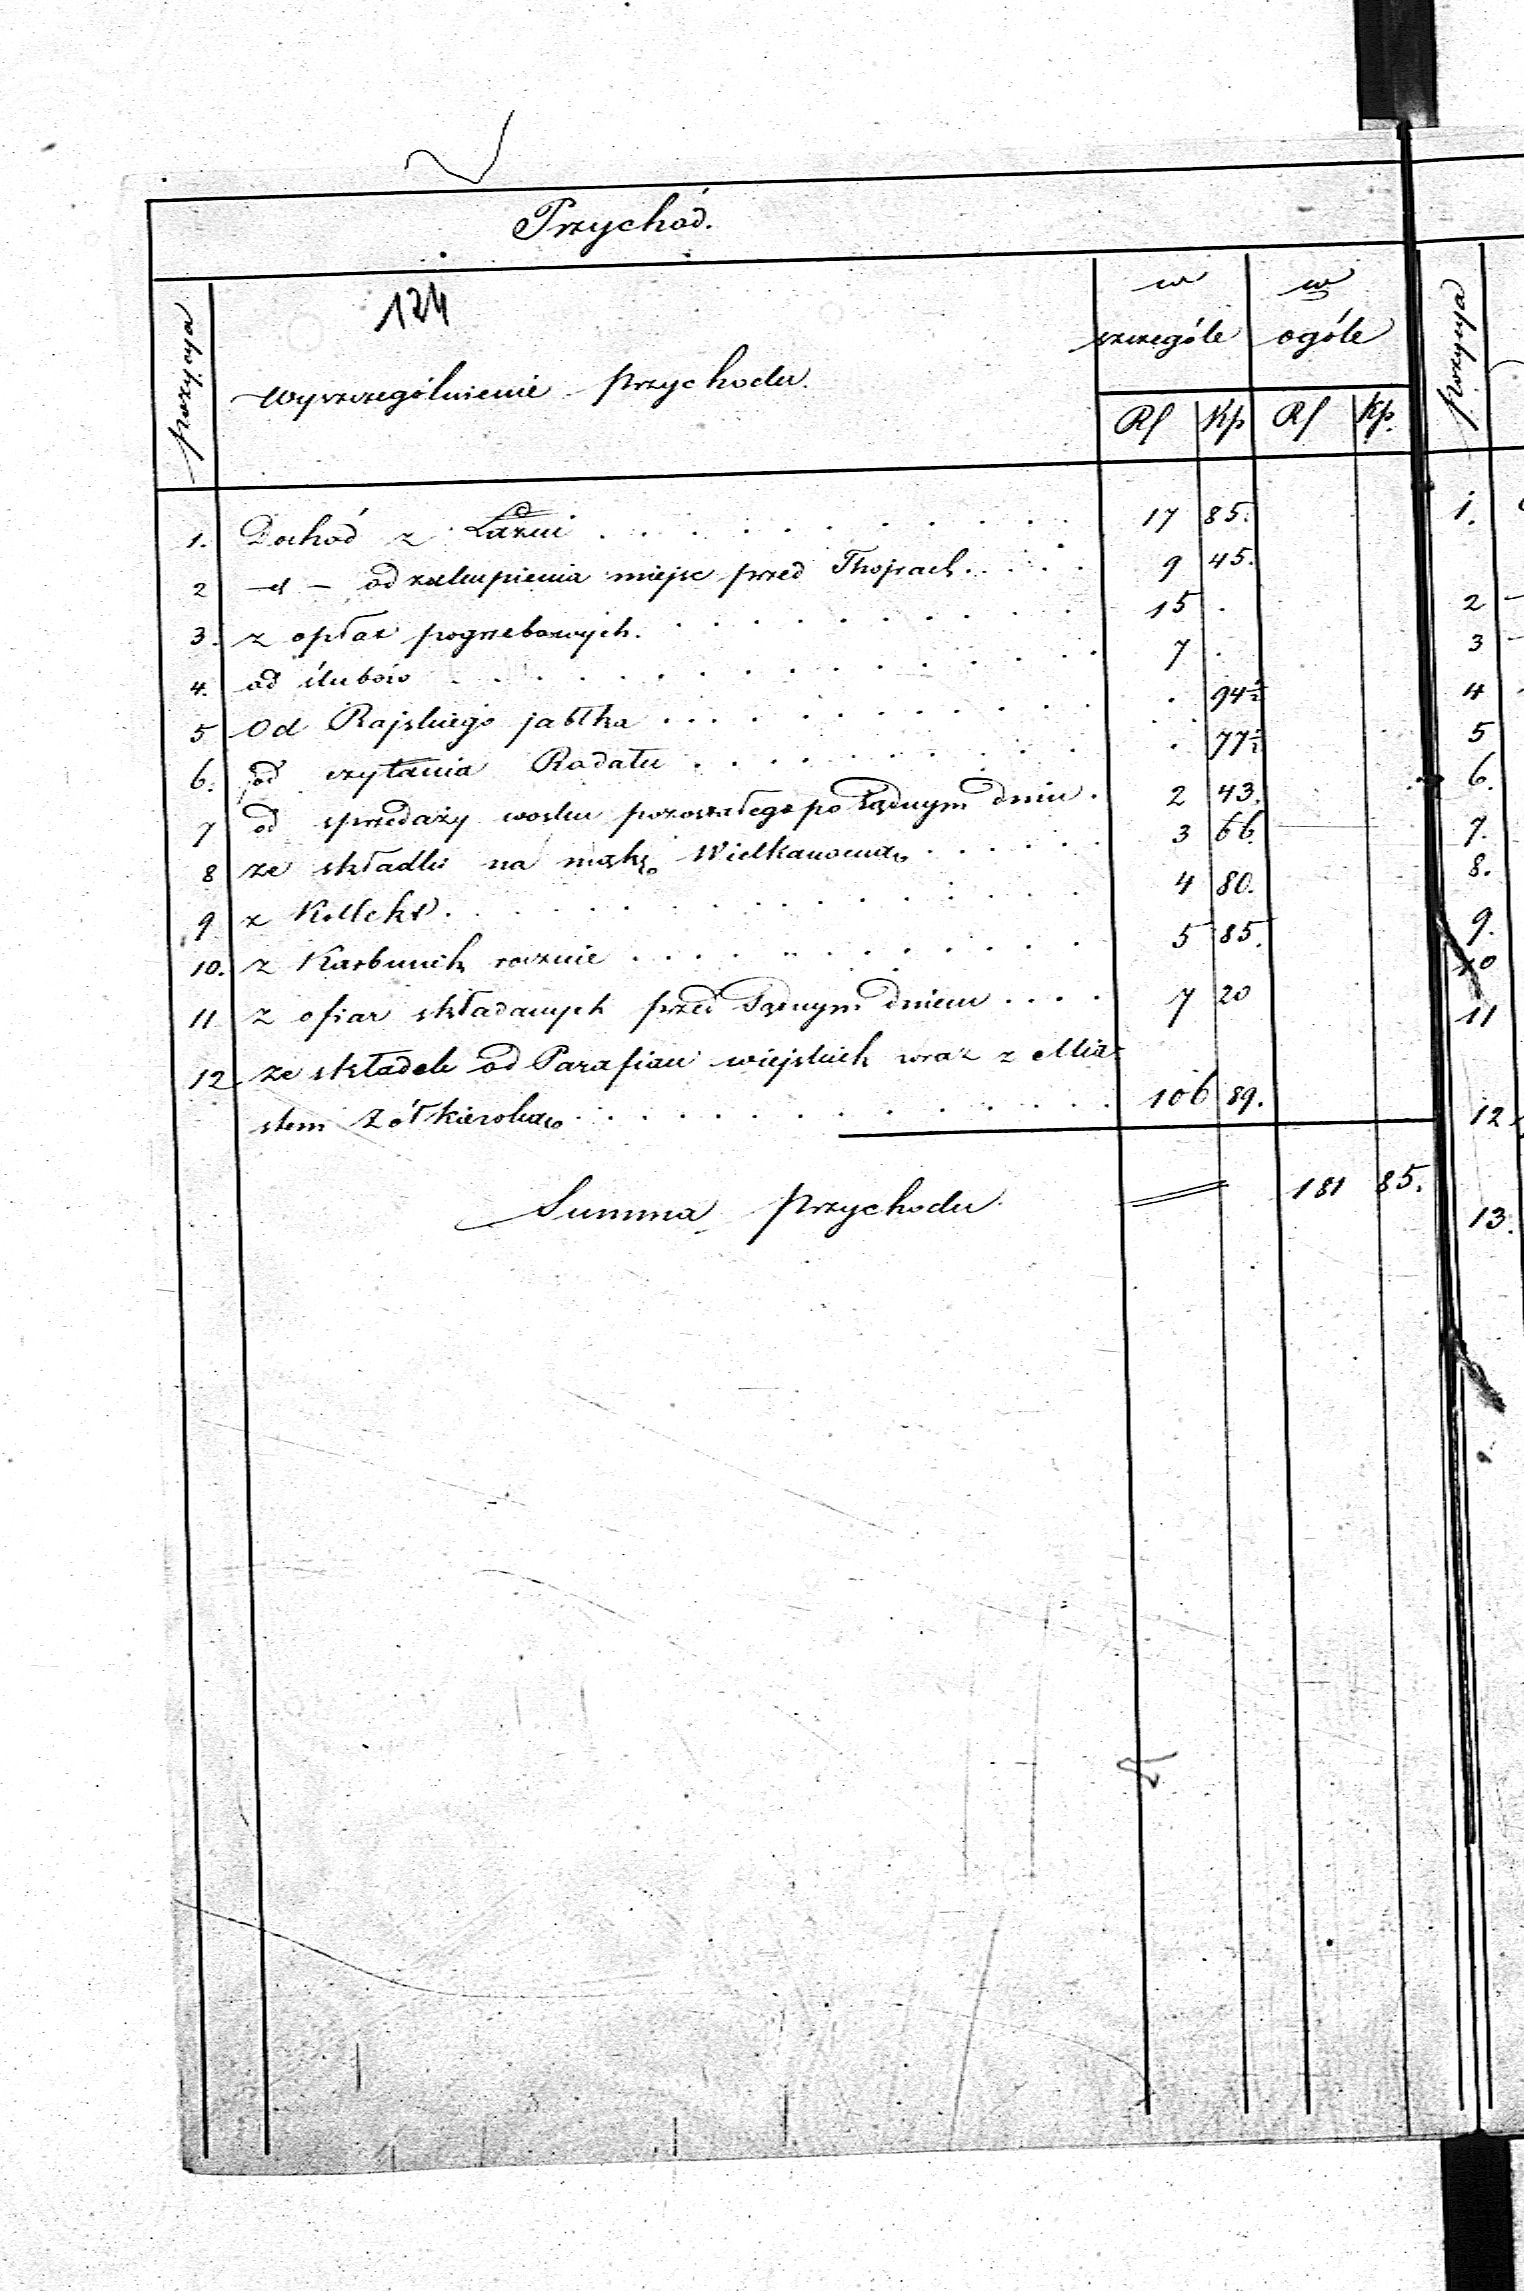 Przychód.
124
pozycya
Wyszczególnienie przychodu.
w szczególe
w ogóle
Rs Kp Rs Kp.
1. Dochód z Łaźni . . . . . . . . . . . 17 85.
2 -d- od zakupienia miejsc przed Thojrach . . . . . 9 45.
3. z opłat pogrzebowych. . . . . . . . . . 15 .
4. od ślubów . . . . . . . . . . . . 7 .
5 Od Rajskiego jabłka . . . . . . . . . . . . 94½
6. od czytania Rodału . . . . . . . . . . 77½
7 od sprzedaży wosku pozostałego po Sądnym dniu . 2 43.
8 ze składki na mąkę Wielkanocną . . . . . . 3 66.
9 z Kollekt . . . . . . . . . . . . . 4 80.
10. z Karbunek rocznie . . . . . . . . . . . 5 85.
11 z ofiar składanych przed Sądnym dniem . . . . 7 20
12 ze składek od Parafian wiejskich wraz z Mia-
stem Żółkiewką . . . . . . . . . . . . . 106 89.
Summa Przychodu. 181 85.
pozycya
1.
2
3
4
5
6.
7.
8.
9.
10
11
12
13.